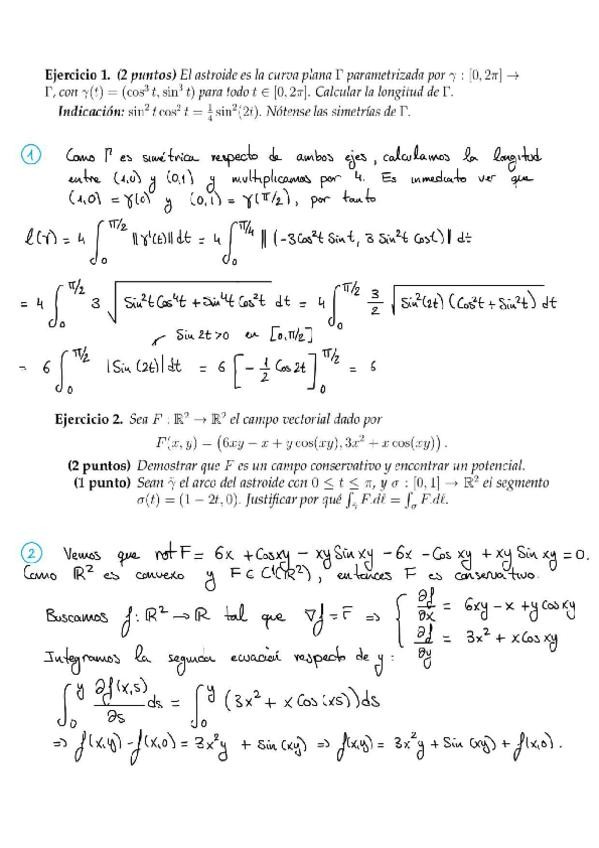 Ejercicio 1. (2 puntos) El astroide es la curva plana Γ parametrizada por γ : [0, 2π] →
Γ, con γ(t) = (cos³ t, sin³ t) para todo t ∈ [0, 2π]. Calcular la longitud de Γ.
Indicación: sin² t cos² t = ¼ sin²(2t). Nótense las simetrías de Γ.
① Como Γ es simétrica respecto de ambos ejes, calculamos la longitud
entre (1,0) y (0,1) y multiplicamos por 4. Es inmediato ver que
(1,0) = γ(0) y (0,1) = γ(π/2), por tanto
ℓ(γ) = 4 ∫₀^{π/2} ‖γ'(t)‖ dt = 4 ∫₀^{π/4} ‖(-3Cos²t Sin t, 3 Sin²t Cos t)‖ dt
= 4 ∫₀^{π/2} 3 √(Sin²t Cos⁴t + Sin⁴t Cos²t) dt = 4 ∫₀^{π/2} 3/2 √(Sin²(2t) (Cos²t + Sin²t)) dt
Sin 2t > 0 en [0, π/2]
= 6 ∫₀^{π/2} |Sin (2t)| dt = 6 [-1/2 Cos 2t]₀^{π/2} = 6
Ejercicio 2. Sea F : ℝ² → ℝ² el campo vectorial dado por
F(x, y) = (6xy − x + y cos(xy), 3x² + x cos(xy)) .
(2 puntos) Demostrar que F es un campo conservativo y encontrar un potencial.
(1 punto) Sean γ̃ el arco del astroide con 0 ≤ t ≤ π, y σ : [0, 1] → ℝ² el segmento
σ(t) = (1 − 2t, 0). Justificar por qué ∫_γ̃ F.dℓ = ∫_σ F.dℓ.
② Vemos que rot F = 6x + Cos xy − xy Sin xy − 6x − Cos xy + xy Sin xy = 0.
Como ℝ² es convexo y F ∈ C¹(ℝ²), entonces F es conservativo.
Buscamos f: ℝ² → ℝ tal que ∇f = F ⇒ { ∂f/∂x = 6xy − x + y Cos xy
∂f/∂y = 3x² + x Cos xy
Integramos la segunda ecuación respecto de y:
∫₀^y ∂f(x,s)/∂s ds = ∫₀^y (3x² + x Cos (xs)) ds
⇒ f(x,y) − f(x,0) = 3x²y + Sin (xy) ⇒ f(x,y) = 3x²y + Sin (xy) + f(x,0).